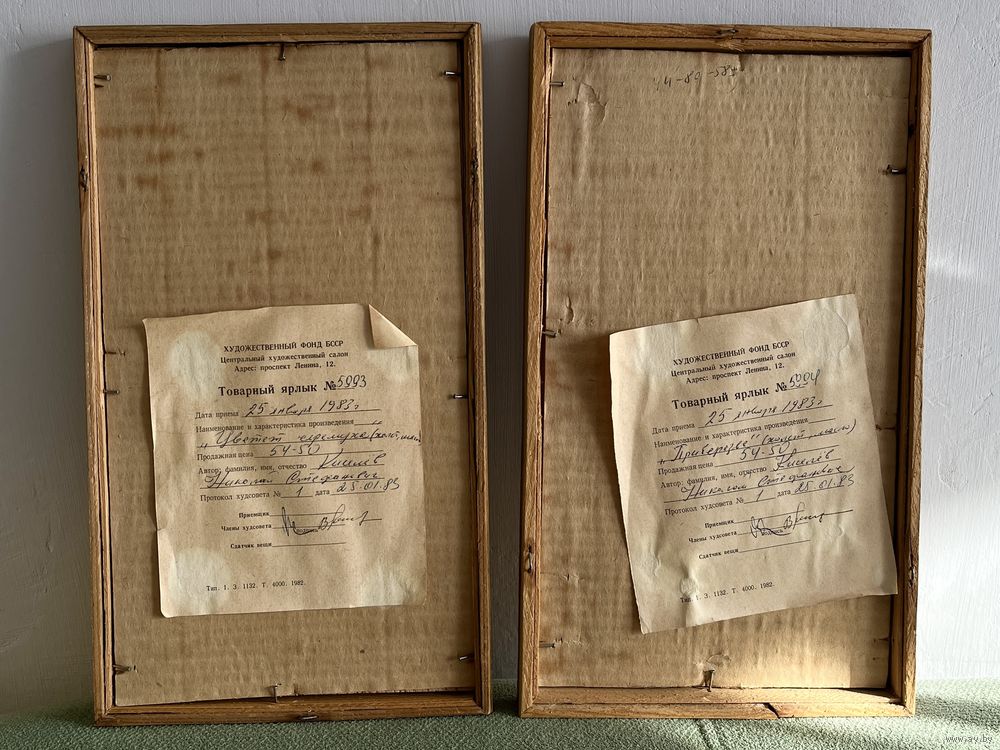 ХУДОЖЕСТВЕННЫЙ ФОНД БССР
Центральный художественный салон
Адрес: проспект Ленина, 12.
Товарный ярлык № 5993
Дата приема 25 января 1983 г.
Наименование и характеристика произведения
„Цветет черемуха" (холст, масло)
Продажная цена 54-50
Автор: фамилия, имя, отчество Киселёв
Николай Стефанович
Протокол худсовета № 1 дата 25.01.83
Приемщик
Члены худсовета
Сдатчик вещи
Тип. 1. З. 1132. Т. 4000. 1982.
ХУДОЖЕСТВЕННЫЙ ФОНД БССР
Центральный художественный салон
Адрес: проспект Ленина, 12.
Товарный ярлык №
Дата приема 25 января 1983 г.
Наименование и характеристика произведения
(холст, масло)
Продажная цена 54-50
Автор: фамилия, имя, отчество Киселёв
Николай Стефанович
Протокол худсовета № 1 дата 25.01.83
Приемщик
Члены худсовета
Сдатчик вещи
Тип. 1. З. 1132. Т. 4000. 1982.
www.ay.by